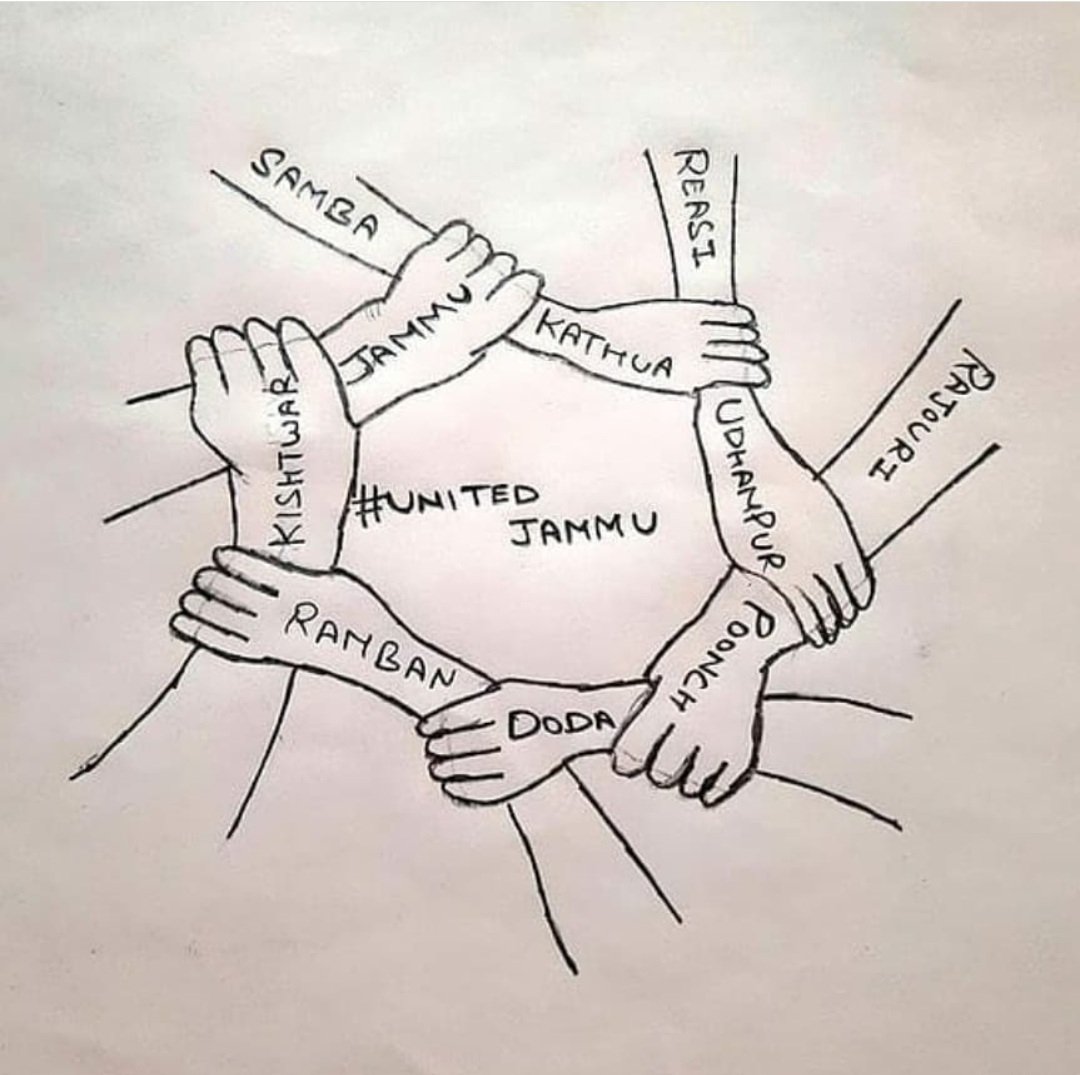 SAMBA
REASI
JAMMU
KATHUA
RAJOURI
KISHTWAR
UDHAMPUR
#UNITED
JAMMU
POONCH
RAMBAN
DODA